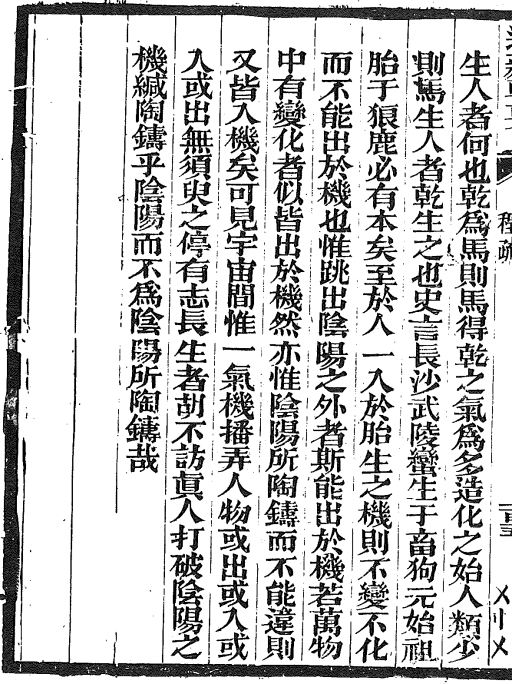 程疏
生人者何也乾爲馬則馬得乾之氣爲多造化之始人類少
則馬生人者乾生之也史言長沙武陵蠻生于畜狗元始祖
胎于狼鹿必有本矣至於人一入於胎生之機則不變不化
而不能出於機也惟跳出陰陽之外者斯能出於機若萬物
中有變化者似皆出於機然亦惟陰陽所陶鑄而不能違則
又皆入機矣可見宇宙間惟一氣機播弄人物或出或入或
入或出無須臾之停有志長生者胡不訪眞人打破陰陽之
機緘陶鑄乎陰陽而不爲陰陽所陶鑄哉